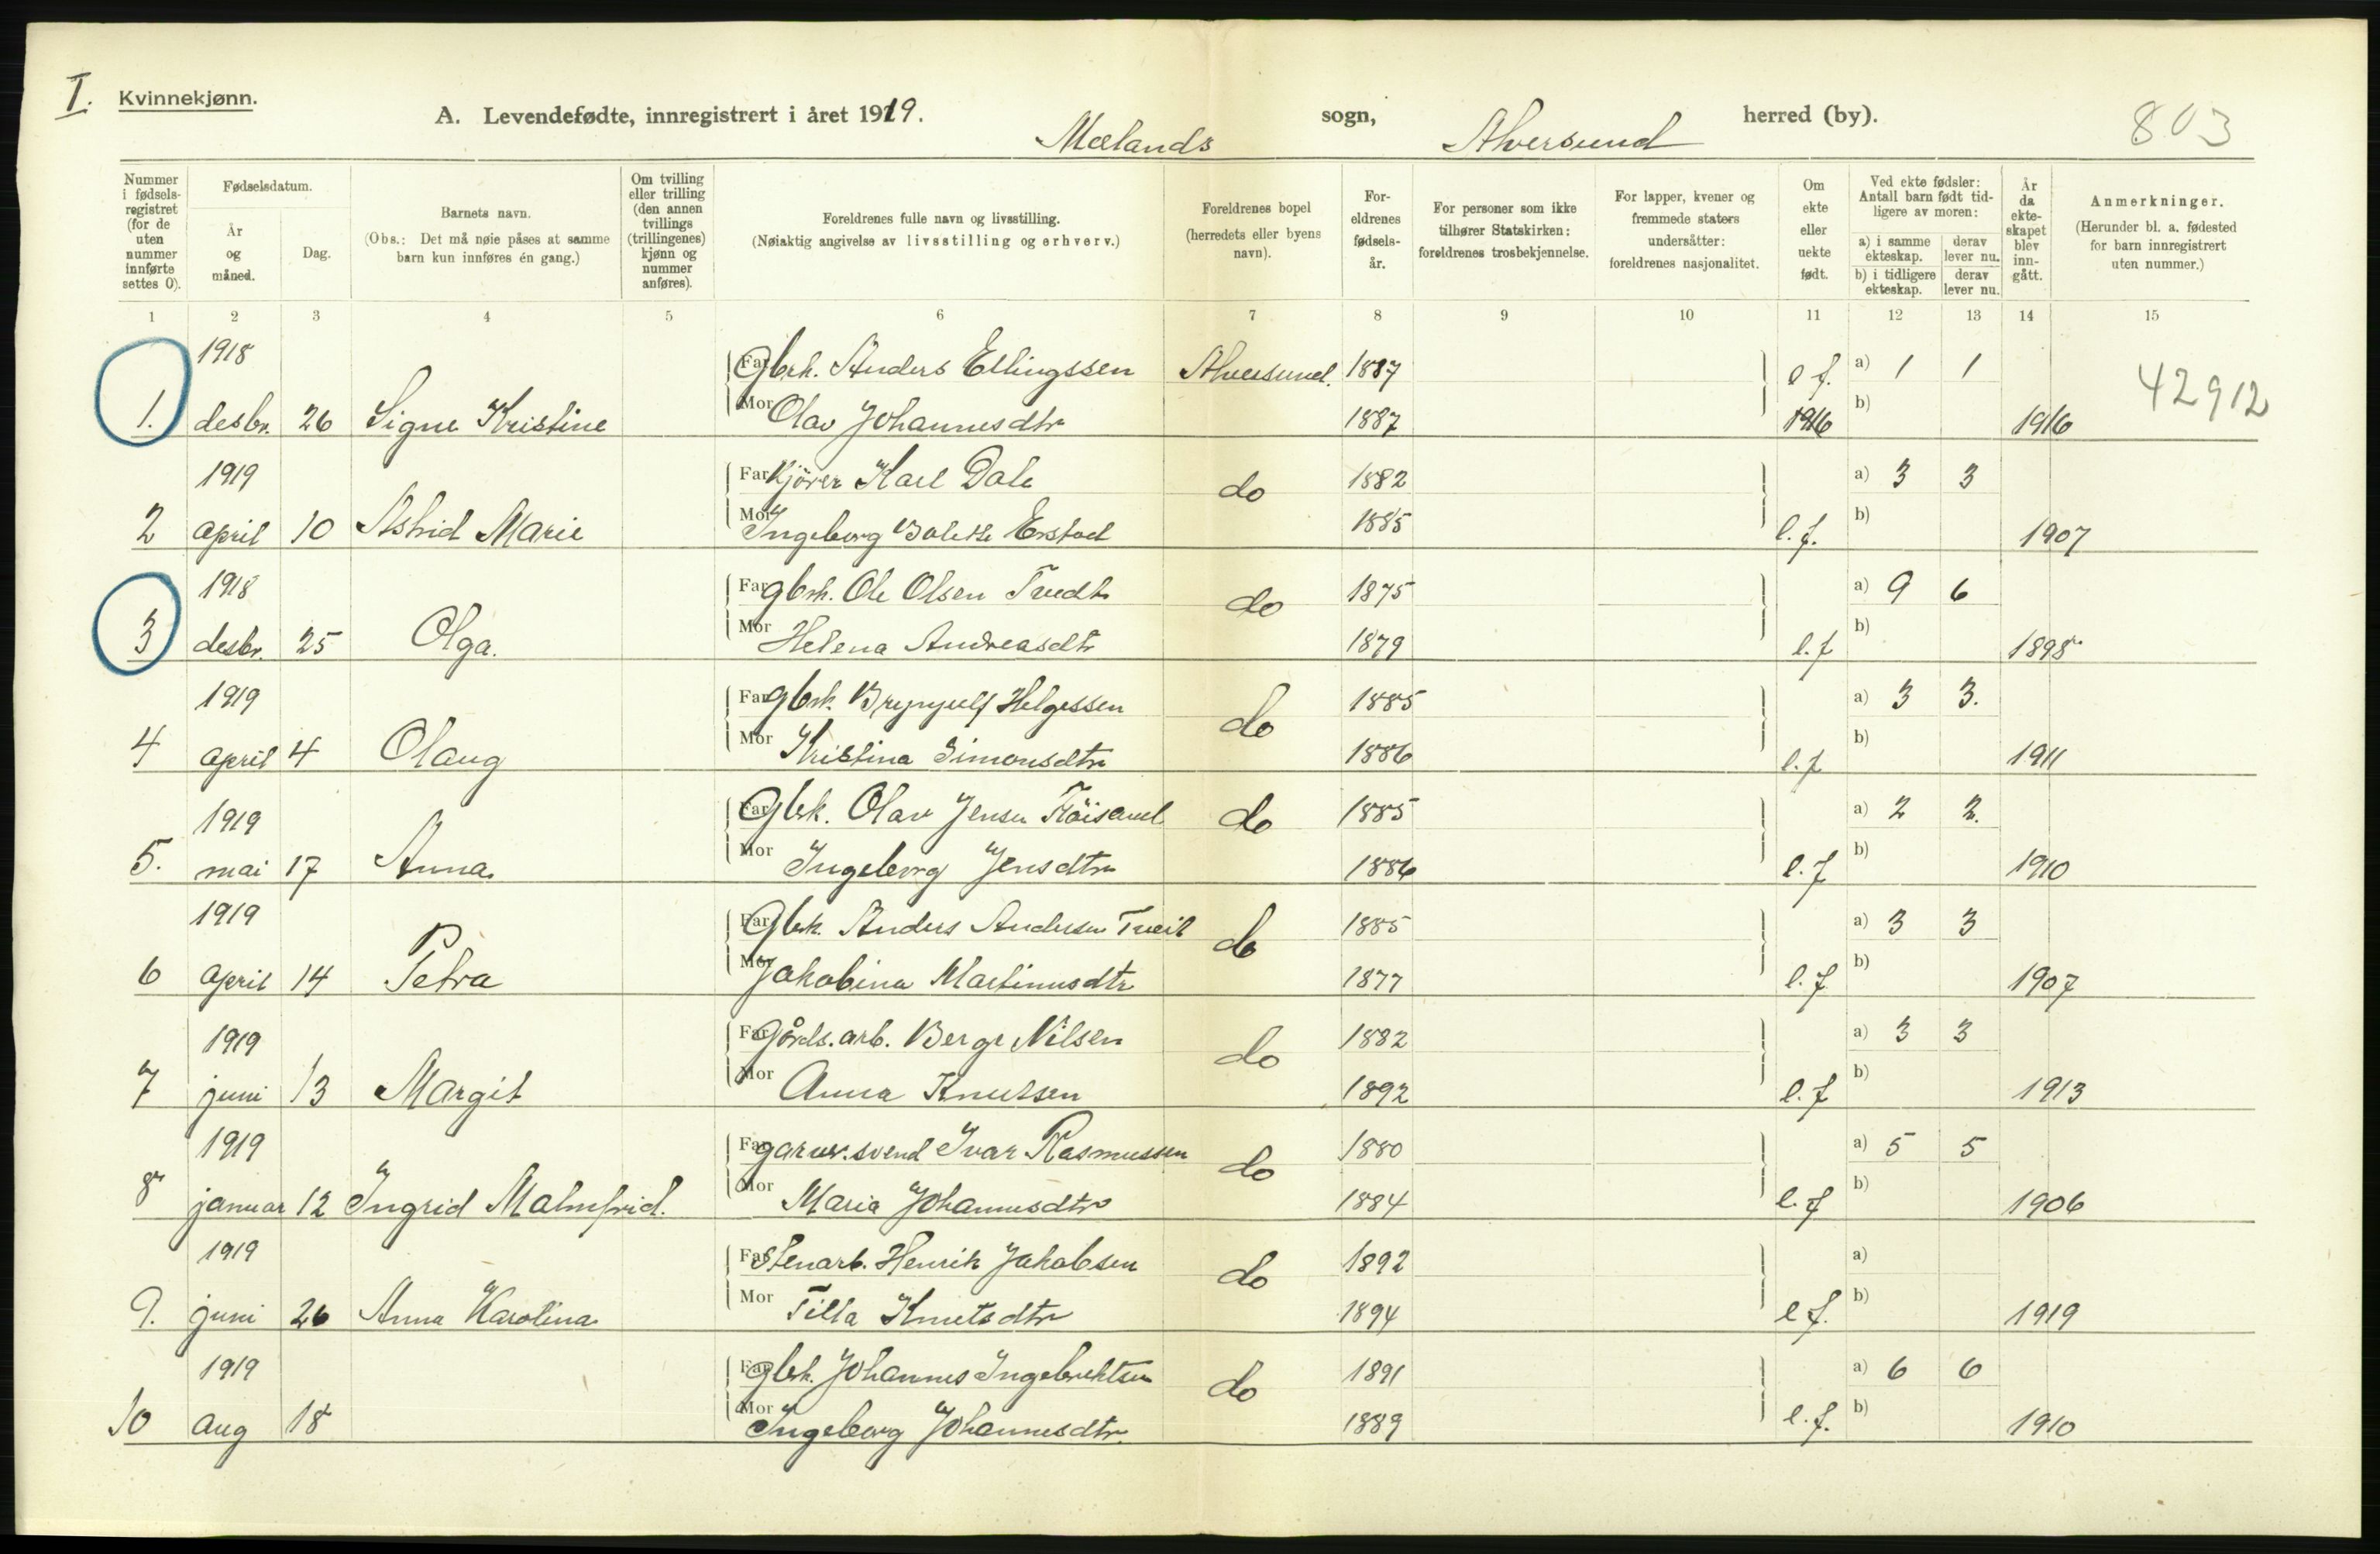 I. Kvinnekjønn.
A. Levendefødte, innregistrert i året 1919. Mælands sogn, Alversund herred (by). 803
Nummer i fødselsregistret (for de uten nummer innførte settes 0).
Fødselsdatum.
År og måned.
Dag.
Barnets navn.
(Obs.: Det må nøie påses at samme barn kun innføres én gang.)
Om tvilling eller trilling (den annen tvillings (trillingenes) kjønn og nummer anføres).
Foreldrenes fulle navn og livsstilling.
(Nøiaktig angivelse av livsstilling og erhverv.)
Foreldrenes bopel (herredets eller byens navn).
Foreldrenes fødselsår.
For personer som ikke tilhører Statskirken: foreldrenes trosbekjennelse.
For lapper, kvener og fremmede staters undersåtter: foreldrenes nasjonalitet.
Om ekte eller uekte født.
Ved ekte fødsler: Antall barn født tidligere av moren:
a) i samme ekteskap. derav lever nu.
b) i tidligere ekteskap. derav lever nu.
År da ekteskapet blev inngått.
Anmerkninger.
(Herunder bl. a. fødested for barn innregistrert uten nummer.)
1 2 3 4 5 6 7 8 9 10 11 12 13 14 15
1918 Far Gbrk. Anders Ellingssen Alversund. 1887 e f. a) 1 1 42912
1. desbr. 26 Signe Kristine Mor Olav Johannesdtr 1887 1916 b) 1916
1919 Far Kjörer Karl Dale do 1882 a) 3 3
2 april 10 Astrid Marie Mor Ingeborg Bolette Erstad 1885 e. f. b) 1907
1918 Far gbrk. Ole Olsen Tvedt do 1875 a) 9 6
3 desbr. 25 Olga. Mor Helena Andreasdtr 1879 e. f b) 1898
1919 Far gbrk. Brynjulf Helgessen do 1885 a) 3 3.
4 april 4 Olaug Mor Kristina Simonsdtr 1886 e. f b) 1911
1919 Far Gbrk. Olav Jensen Flöisand do 1885 a) 2 2.
5. mai 17 Anna. Mor Ingeborg Jensdtr 1886 e. f b) 1910
1919 Far Gbrk. Anders Andersen Tveit do 1885 a) 3 3
6 april 14 Petra Mor Jakobina Martinusdtr 1877 e. f b) 1907
1919 Far Gårds.arb. Berge Nilsen do 1882 a) 3 3
7 juni 13 Margit Mor Anna Knutsen 1892 e. f b) 1913
1919 Far garver.svend Ivar Rasmussen do 1880 a) 5 5
8 januar 12 Ingrid Malmfrid. Mor Maria Johannesdtr 1884 e. f b) 1906
1919 Far Stenarb. Henrik Jakobsen do 1892 a)
9. juni 26 Anna Karolina Mor Tilla Knutsdtr 1894 e f. b) 1919
1919 Far gbrk. Johannes Ingebrektsen do 1891 a) 6 6
10 aug 18 Mor Ingeborg Johannesdtr. 1889 e. f. b) 1910